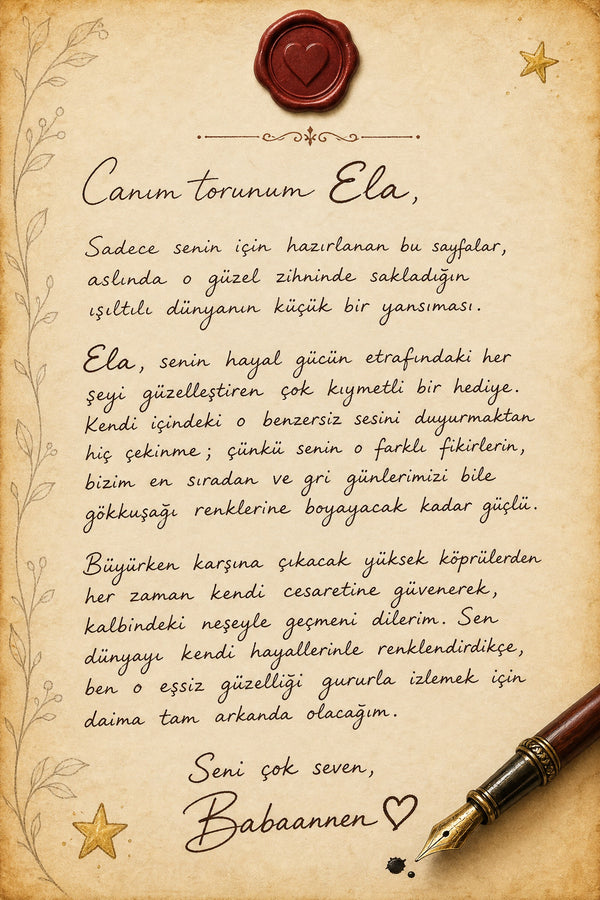 Canım torunum Ela,
Sadece senin için hazırlanan bu sayfalar,
aslında o güzel zihninde sakladığın
ışıltılı dünyanın küçük bir yansıması.
Ela, senin hayal gücün etrafındaki her
şeyi güzelleştiren çok kıymetli bir hediye.
Kendi içindeki o benzersiz sesini duyurmaktan
hiç çekinme; çünkü senin o farklı fikirlerin,
bizim en sıradan ve gri günlerimizi bile
gökkuşağı renklerine boyayacak kadar güçlü.
Büyürken karşına çıkacak yüksek köprülerden
her zaman kendi cesaretine güvenerek,
kalbindeki neşeyle geçmeni dilerim. Sen
dünyayı kendi hayallerinle renklendirdikçe,
ben o eşsiz güzelliği gururla izlemek için
daima tam arkanda olacağım.
Seni çok seven,
Babaannen♡